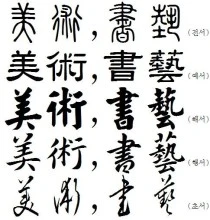 美術, 書藝 (전서)
美術, 書藝 (예서)
美術, 書藝 (해서)
美術, 書藝 (행서)
美術, 書藝 (초서)